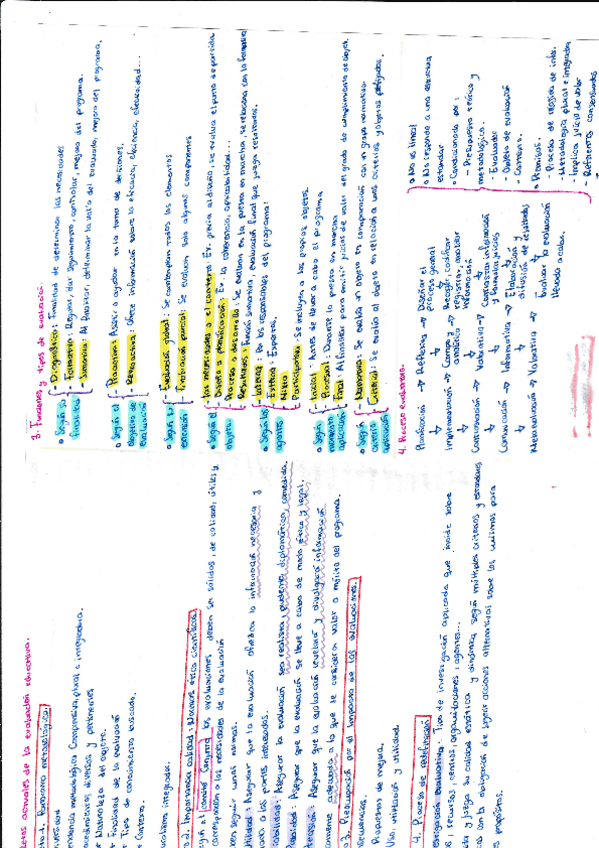 3. Funciones y tipos de evaluación.
- Diagnóstica: Finalidad de determinar las necesidades
- Formativa: Regular, dar seguimiento, controlar, mejora del programa.
- Sumativa: Al finalizar, determinar la valía del evaluado, mejora del programa.
- Proactiva: Asistir o ayudar en la toma de decisiones.
Según el objetivo de evaluación
- Retroactiva: Ofrece información sobre la eficacia, eficiencia, efectividad...
Según la extensión
- Evaluación global: Se contemplan todos los elementos
- Evaluación parcial: Se evalúan solo algunos componentes
Según el objeto
Diseño o planificación: Ev. la coherencia, aplicabilidad...
Proceso o desarrollo: Se evalúa en la puesta en marcha, se relaciona con la formativa
Resultados: Función sumativa, evaluación final que juzga resultados.
Según los agentes
Interna: Por los responsables del programa.
Externa: Expertos.
Mixta
Participantes:
Según el momento aplicación
- Inicial: Antes de llevar a cabo el programa
- Procesual: Durante la puesta en marcha
- Final: Al finalizar para emitir juicios de valor del grado de cumplimiento de objet.
Según el criterio aplicación
- Normativa: Se evalúa un objeto en comparación con un grupo normativo.
- Criterial: Se evalúa el objeto en relación a unos criterios y objetivos prefijados.
4. Proceso evaluativo.
Planificación → Reflexiva → Diseñar el proceso general
Implementación → Campo y analítica → Recoger, codificar registrar, analizar información
Valorativa → Contrastar información y formular juicios
Comunicación → Informativa → Elaboración y difusión de resultados
Metaevaluación → Valorativa → Evaluar la evaluación llevada a cabo.
No es lineal
No responde a una estructura estándar
Condicionada por:
- Presupuesto teórico y metodológico.
- Evaluador
- Objeto de evaluación
- Contexto.
Premisas.
- Proceso de recogida de info.
- Metodología plural e integrada
- Implica juicio de valor
- Referentes consensuados
actuales de la evaluación educativa.
metodológico.
metodológica Comprensiva, plural e integradora.
diversos y pertinentes
Naturaleza del objeto.
Finalidad de la evaluación
Tipos de conocimiento buscado.
Contexto.
integrador.
2. Importancia calidad: Normas ético científicas.
las evaluaciones deben ser sólidas, de calidad, útiles y
corresponder a las necesidades de la evaluación
seguir unas normas.
Asegurar que la evaluación ofrezca la información necesaria y
a las partes interesadas.
Asegurar la evaluación sea realista, prudente, diplomática, comedida
Asegurar que la evaluación se lleve a cabo de modo ético y legal.
Asegurar que la evaluación revelará y divulgará información
adecuada a lo que se consideran valor o mérito del programa.
3. Preocupación por el impacto de las evaluaciones.
Propuestas de mejora.
Uso, utilización y utilidad.
4. Proceso de redefinición
Investigación evaluativa: Tipo de investigación aplicada que incide sobre
recursos, centros, organizaciones, agentes...
y juzga su calidad estática y dinámica según múltiples criterios y estándares
con la obligación de sugerir acciones alternativas sobre los mismos para
propósitos.